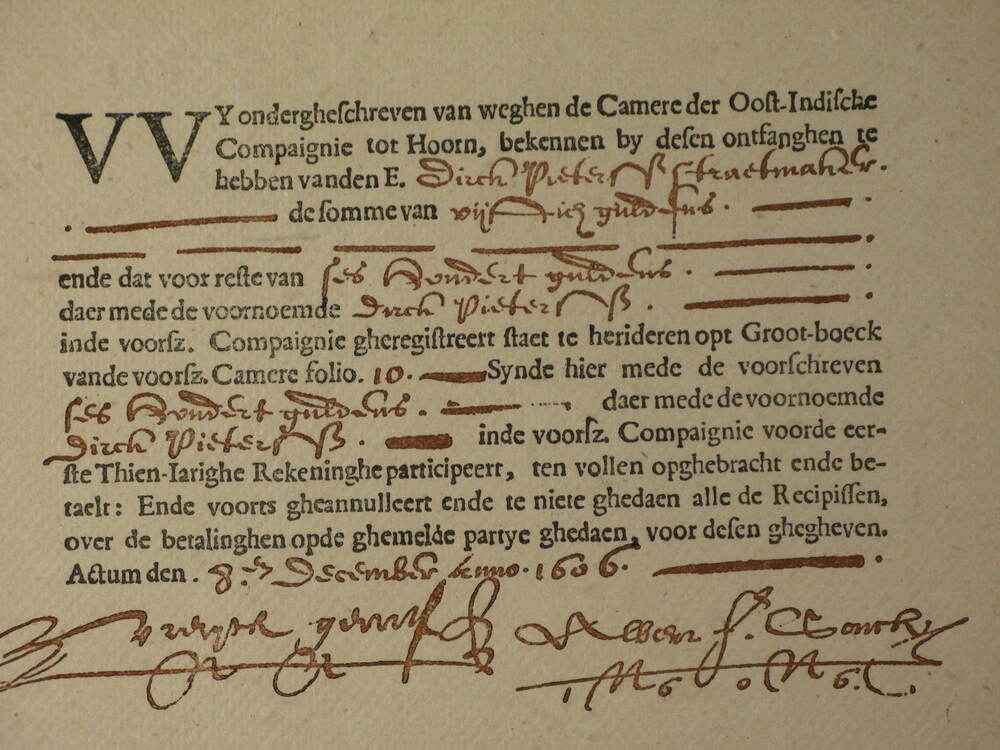 VVY ondergheſchreven van weghen de Camere der Ooſt-Indiſche
Compaignie tot Hoorn, bekennen by deſen ontfanghen te
hebben vanden E. Dirck Pieterſß ſtraetmaker.
de ſomme van vijftich guldens.
ende dat voor reſte van ſes hondert guldens.
daer mede de voornoemde Dirck Pieterſß.
inde voorſz. Compaignie gheregiſtreert ſtaet te herideren opt Groot-boeck
vande voorſz. Camere folio. 10. Synde hier mede de voorſchreven
ſes hondert guldens. daer mede de voornoemde
Dirck Pieterſß. inde voorſz. Compaignie voorde eer-
ſte Thien-Iarighe Rekeninghe participeert, ten vollen opghebracht ende be-
taelt: Ende voorts gheannulleert ende te niete ghedaen alle de Recipiſſen,
over de betalinghen opde ghemelde partye ghedaen, voor deſen ghegheven.
Actum den. 8.en December Anno. 1606.